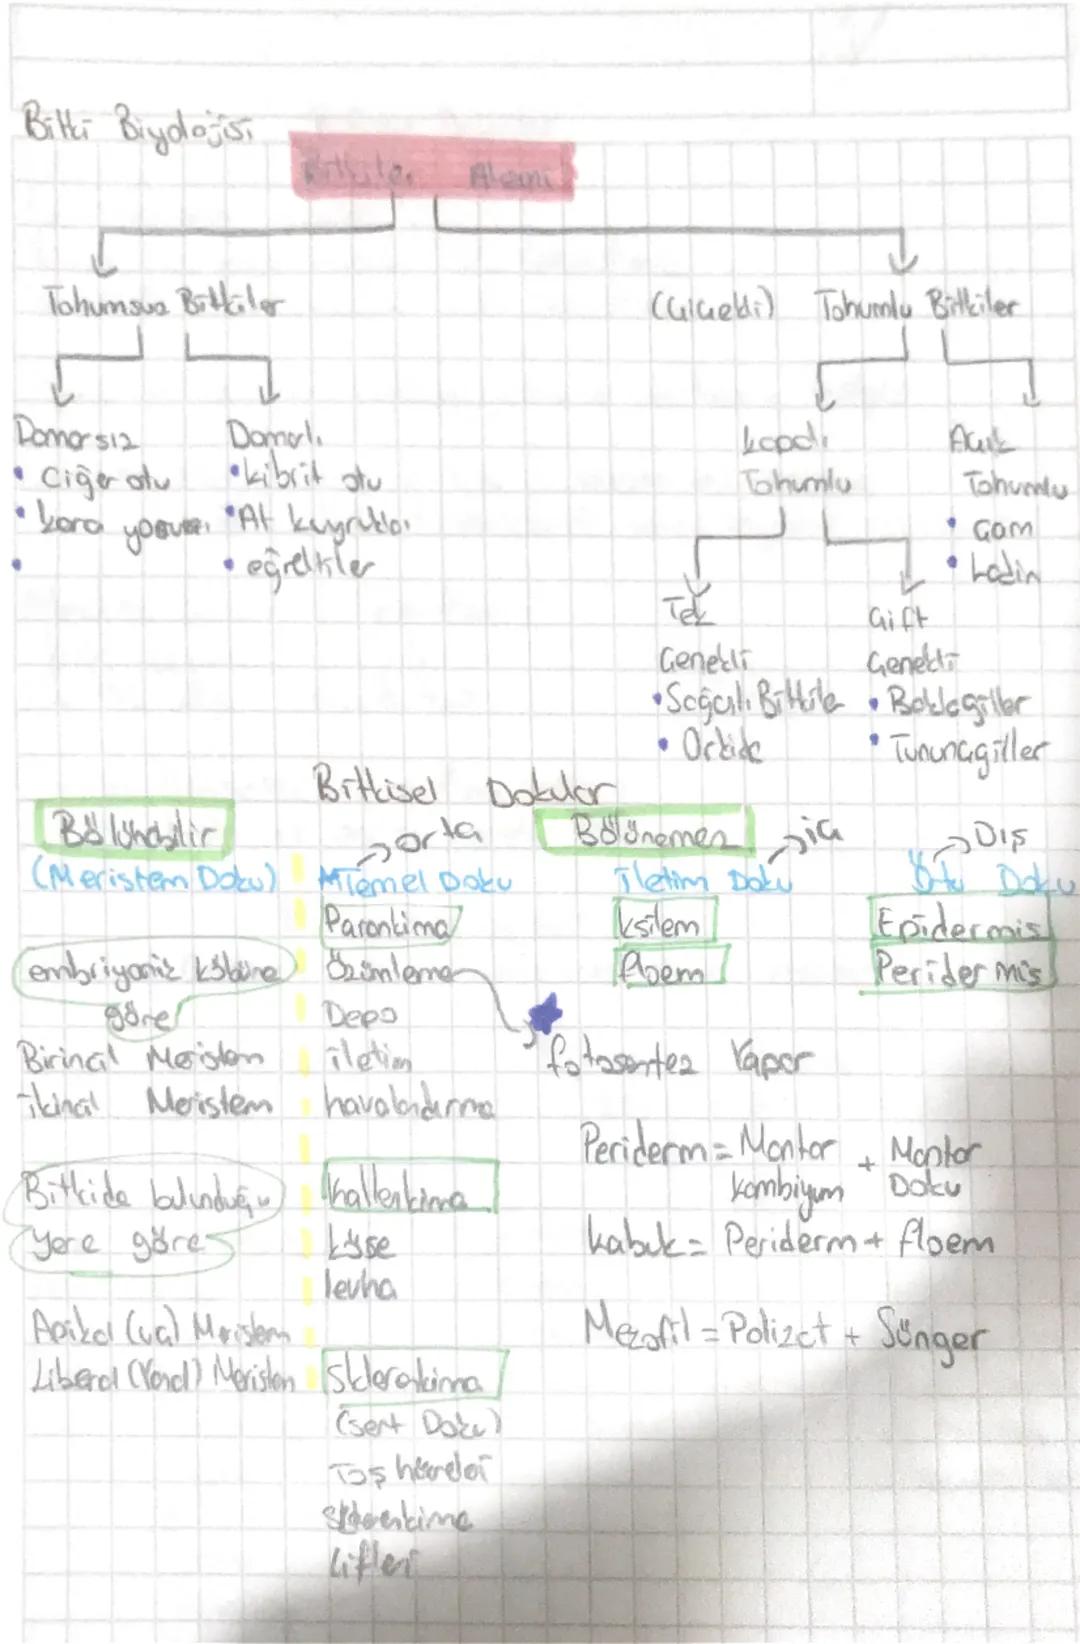 Bitki Biyolojisi
Bitkiler Alemi
Tohumsuz Bitkiler
(Çiçekli) Tohumlu Bitkiler
Damarsız
• Ciğer otu
• kara yosunu
Damarlı
• kibrit otu
• At kuyrukları
• eğreltiler
kapalı
Tohumlu
Açık
Tohumlu
• Çam
• Ladin
Tek
Çenekli
• Soğanlı Bitkile
• Orkide
Çift
Çenekli
• Baklagiller
• Turunçgiller
Bitkisel Dokular
Bölünebilir
(Meristem Doku)
embriyonik kökine
göre
Birincil Meristem
ikincil Meristem
Bitkide bulunduğu
Yere göre
Apikal (uç) Meristem
Liberal (Yanal) Meristem
orta
Temel Doku
Parankima
Özümleme
Depo
iletim
havalandırma
kollenkima
köşe
levha
Sklerankima
(sert Doku)
Taş hücreleri
Sklerenkima
Lifleri
Bölünemez
iç
İletim Doku
ksilem
floem
Dış
Örtü Doku
Epidermis
Peridermis
fotosentez Yapar
Periderm = Mantar kambiyum + Mantar Doku
kabuk = Periderm + floem
Mezofil = Polizat + Sünger